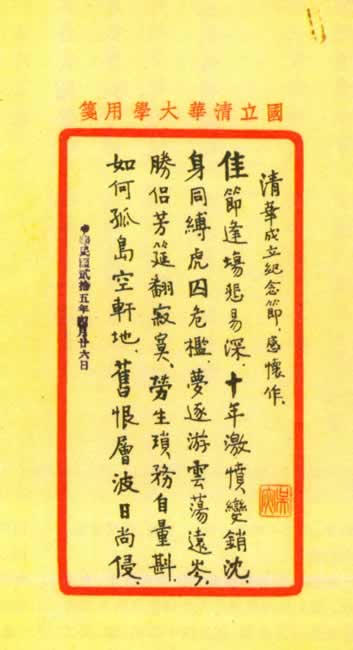 國立清華大學用箋
清華成立紀念節，感懷作。
佳節逢塲悲易深。十年激憤變銷沈。
身同縛虎囚危檻，夢逐游雲蕩遠岑。
勝侶芳筵翻寂寞，勞生瑣務自量斟。
如何孤島空軒地，舊恨層波日尚侵。
中華民國貳拾五年四月廿六日